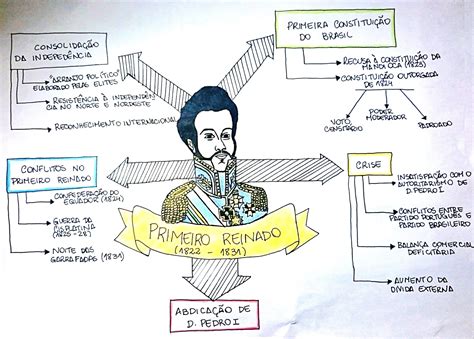 CONSOLIDAÇÃO
DA INDEPEDÊNCIA
"ARRANJO POLÍTICO"
ELABORADO PELAS ELITES
RESISTÊNCIA À INDEPENDÊN-
CIA NO NORTE E NORDESTE
RECONHECIMENTO INTERNACIONAL
PRIMEIRA CONSTITUIÇÃO
DO BRASIL
RECUSA À CONSTITUIÇÃO DA
MANDIOCA (1823)
CONSTITUIÇÃO OUTORGADA
DE 1824
VOTO
CENSITÁRIO
PODER
MODERADOR
PADROADO
CONFLITOS NO
PRIMEIRO REINADO
CONFEDERAÇÃO DO
EQUADOR (1824)
GUERRA DA
CISPLATINA
(1825-28)
NOITE DAS
GARRAFADAS (1831)
CRISE
INSATISFAÇÃO COM O
AUTORITARISMO DE
D. PEDRO I
CONFLITOS ENTRE
PARTIDO PORTUGUÊS E
PARTIDO BRASILEIRO
BALANÇA COMERCIAL
DEFICITÁRIA
AUMENTO DA
DÍVIDA EXTERNA
PRIMEIRO REINADO
(1822 - 1831)
ABDICAÇÃO DE
D. PEDRO I